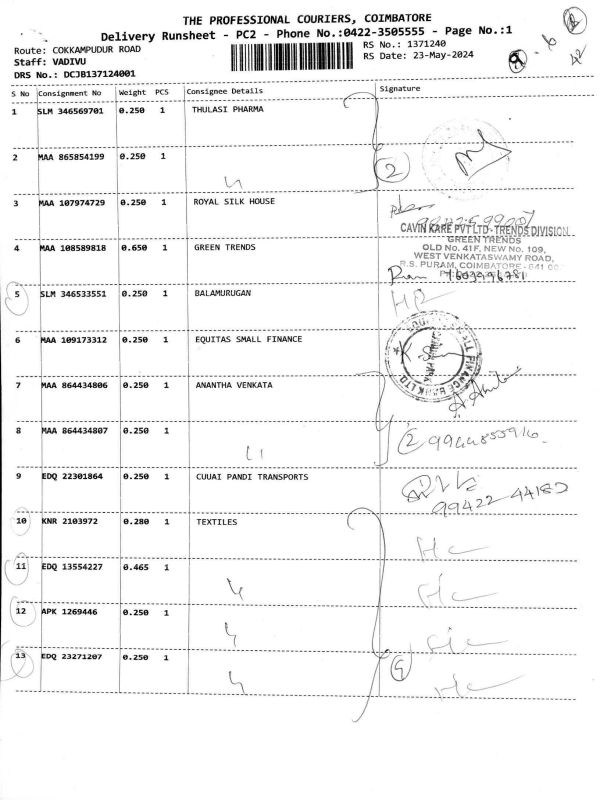 THE PROFESSIONAL COURIERS, COIMBATORE
Delivery Runsheet - PC2 - Phone No.:0422-3505555 - Page No.:1
Route: COKKAMPUDUR ROAD
RS No.: 1371240
Staff: VADIVU
RS Date: 23-May-2024
DRS No.: DCJB137124001
S No Consignment No Weight PCS Consignee Details Signature
1 SLM 346569701 0.250 1 THULASI PHARMA
2 MAA 865854199 0.250 1
2
3 MAA 107974729 0.250 1 ROYAL SILK HOUSE
CAVIN KARE PVT LTD - TRENDS DIVISION
GREEN TRENDS
4 MAA 108589818 0.650 1 GREEN TRENDS
OLD No. 41F, NEW No. 109,
WEST VENKATASWAMY ROAD,
R.S. PURAM, COIMBATORE - 641 00
5 SLM 346533551 0.250 1 BALAMURUGAN
6 MAA 109173312 0.250 1 EQUITAS SMALL FINANCE
7 MAA 864434806 0.250 1 ANANTHA VENKATA
8 MAA 864434807 0.250 1
2
9 EDQ 22301864 0.250 1 CUUAI PANDI TRANSPORTS
10 KNR 2103972 0.280 1 TEXTILES
11 EDQ 13554227 0.465 1
12 APK 1269446 0.250 1
13 EDQ 23271207 0.250 1